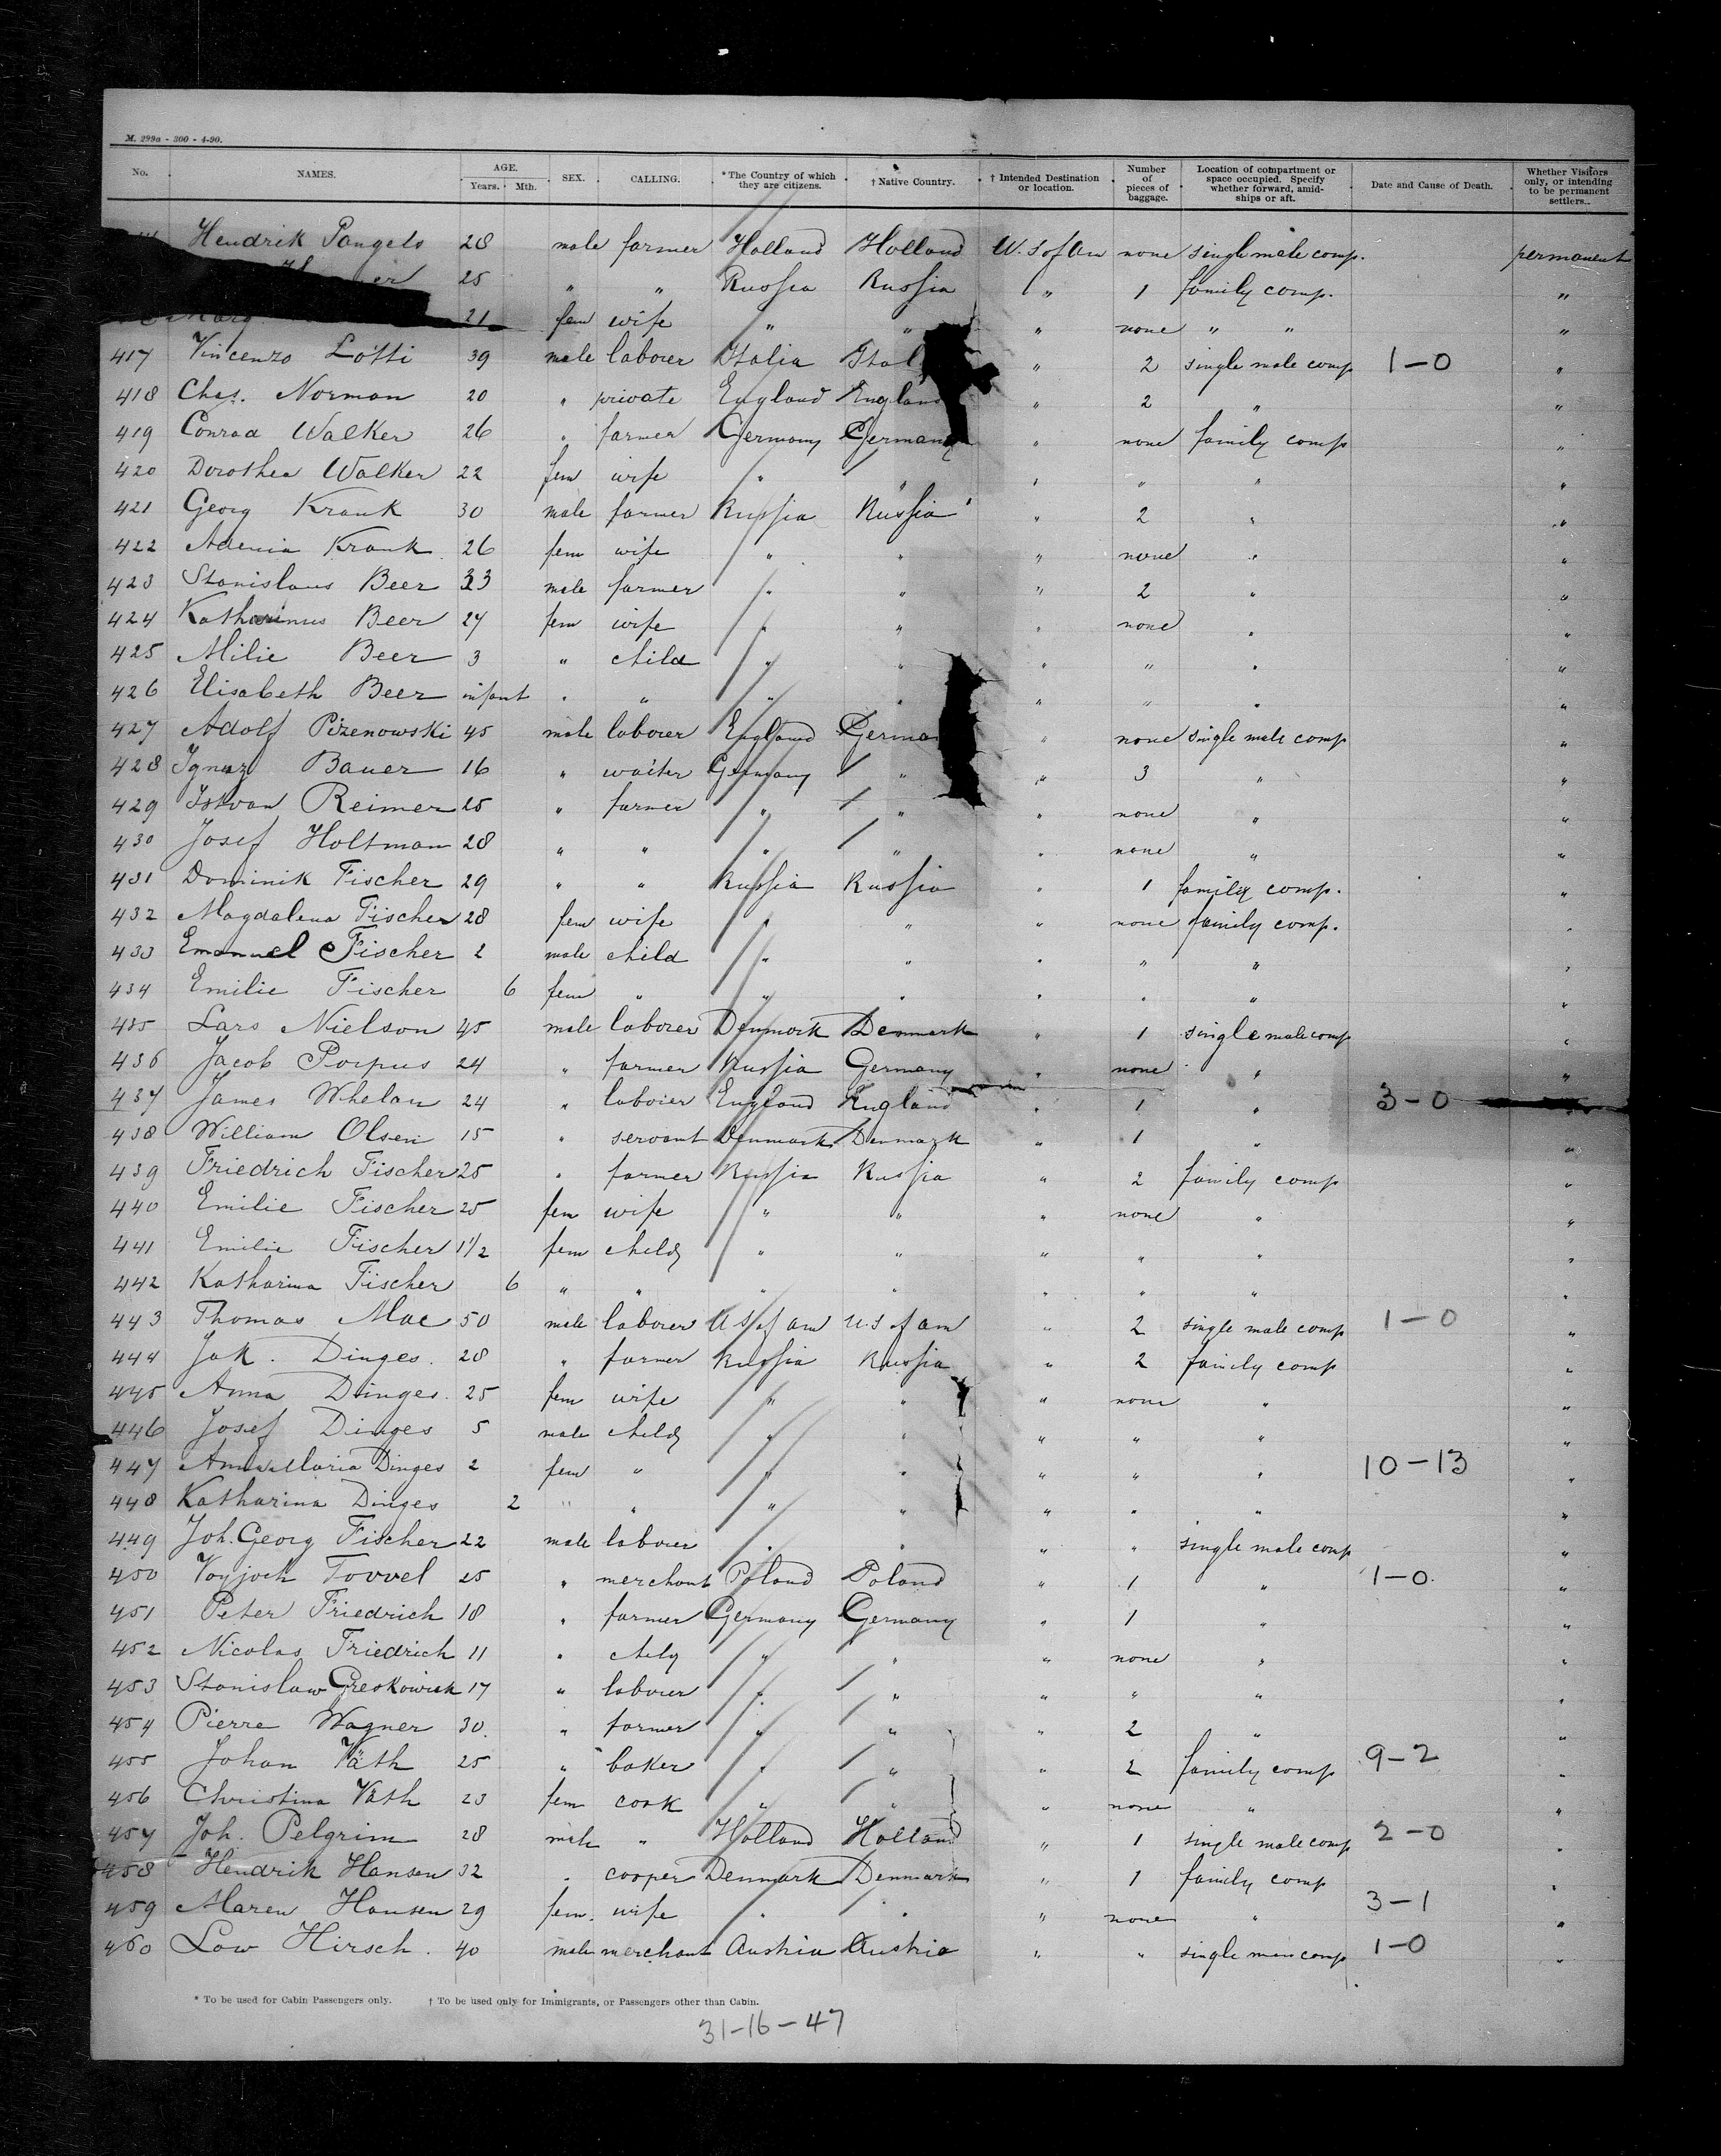 M. 299a - 300 - 4-90.
No. NAMES. AGE. Years. Mth. SEX. CALLING. * The Country of which they are citizens. † Native Country. † Intended Destination or location. Number of pieces of baggage. Location of compartment or space occupied. Specify whether forward, amidships or aft. Date and Cause of Death. Whether Visitors only, or intending to be permanent settlers.
Hendrik Pangels 28 male farmer Holland Holland U. S of Am none single male comp. permanent
25 " " Russia Russia " 1 family comp. "
21 fem wife " " " none " " "
417 Vincenzo Lotti 39 male laborer Italia Ital " 2 single male comp 1-0 "
418 Chas. Norman 20 " private England England " 2 " "
419 Conrad Walker 26 " farmer Germany Germany " none family comp "
420 Dorothea Walker 22 fem wife " " " " " "
421 Georg Krank 30 male farmer Russia Russia " 2 " "
422 Krank 26 fem wife " " " none " "
423 Stanislaus Beer 33 male farmer " " " 2 " "
424 Beer 27 fem wife " " " none " "
425 Milie Beer 3 " child " " " " " "
426 Elisabeth Beer infant " " " " " " " "
427 Adolf Pizenowski 45 male laborer England German " none single male comp "
428 Ignaz Bauer 16 " waiter Germany " " 3 " "
429 Istvan Reimer 25 " farmer " " " none " "
430 Josef Holtman 28 " " " " " none " "
431 Dominik Fischer 29 " " Russia Russia " 1 family comp. "
432 Magdalena Fischer 28 fem wife " " " none family comp. "
433 Emanuel Fischer 2 male child " " " " " "
434 Emilie Fischer 6 fem " " " " " " "
435 Lars Nielson 45 male laborer Denmark Denmark " 1 single male comp "
436 Jacob Porpus 24 " farmer Russia Germany " none " "
437 James Whelan 24 " laborer England England " 1 " 3-0 "
438 William Olsen 15 " servant Denmark Denmark " 1 " "
439 Friedrich Fischer 25 " farmer Russia Russia " 2 family comp "
440 Emilie Fischer 25 fem wife " " " none " "
441 Emilie Fischer 1 1/2 fem child " " " " " "
442 Katharina Fischer 6 " " " " " " " "
443 Thomas Mac 50 male laborer U S of am U. S of am " 2 single male comp 1-0 "
444 Jak. Dinges. 28 " farmer Russia Russia " 2 family comp "
445 Anna Dinges. 25 fem wife " " " none " "
446 Josef Dinges 5 male child " " " " " "
447 Anna Maria Dinges 2 fem " " " " " " 10-13 "
448 Katharina Dinges 2 " " " " " " " "
449 Joh. Georg Fischer 22 male laborer " " " " single male comp "
450 25 " merchant Poland Poland " 1 " 1-0. "
451 Peter Friedrich 18 " farmer Germany Germany " 1 " "
452 Nicolas Friedrich 11 " " " " none " "
453 Stanislaw Greskowiak 17 " laborer " " " " " "
454 Pierre Wagner 30. " farmer " " " 2 " "
455 Johan Väth 25 " baker " " " 2 family comp 9-2 "
456 Christina Väth 23 fem cook " " " none " "
457 Joh. Pelgrim 28 male " Holland Holland " 1 single male comp 2-0 "
458 Hendrik Hansen 32 " cooper Denmark Denmark " 1 family comp "
459 Maren Hansen 29 fem. wife " " " none " 3-1 "
460 Low Hirsch. 40 male merchant Austria Austria " " single man comp 1-0 "
* To be used for Cabin Passengers only. † To be used only for Immigrants, or Passengers other than Cabin.
31-16-47